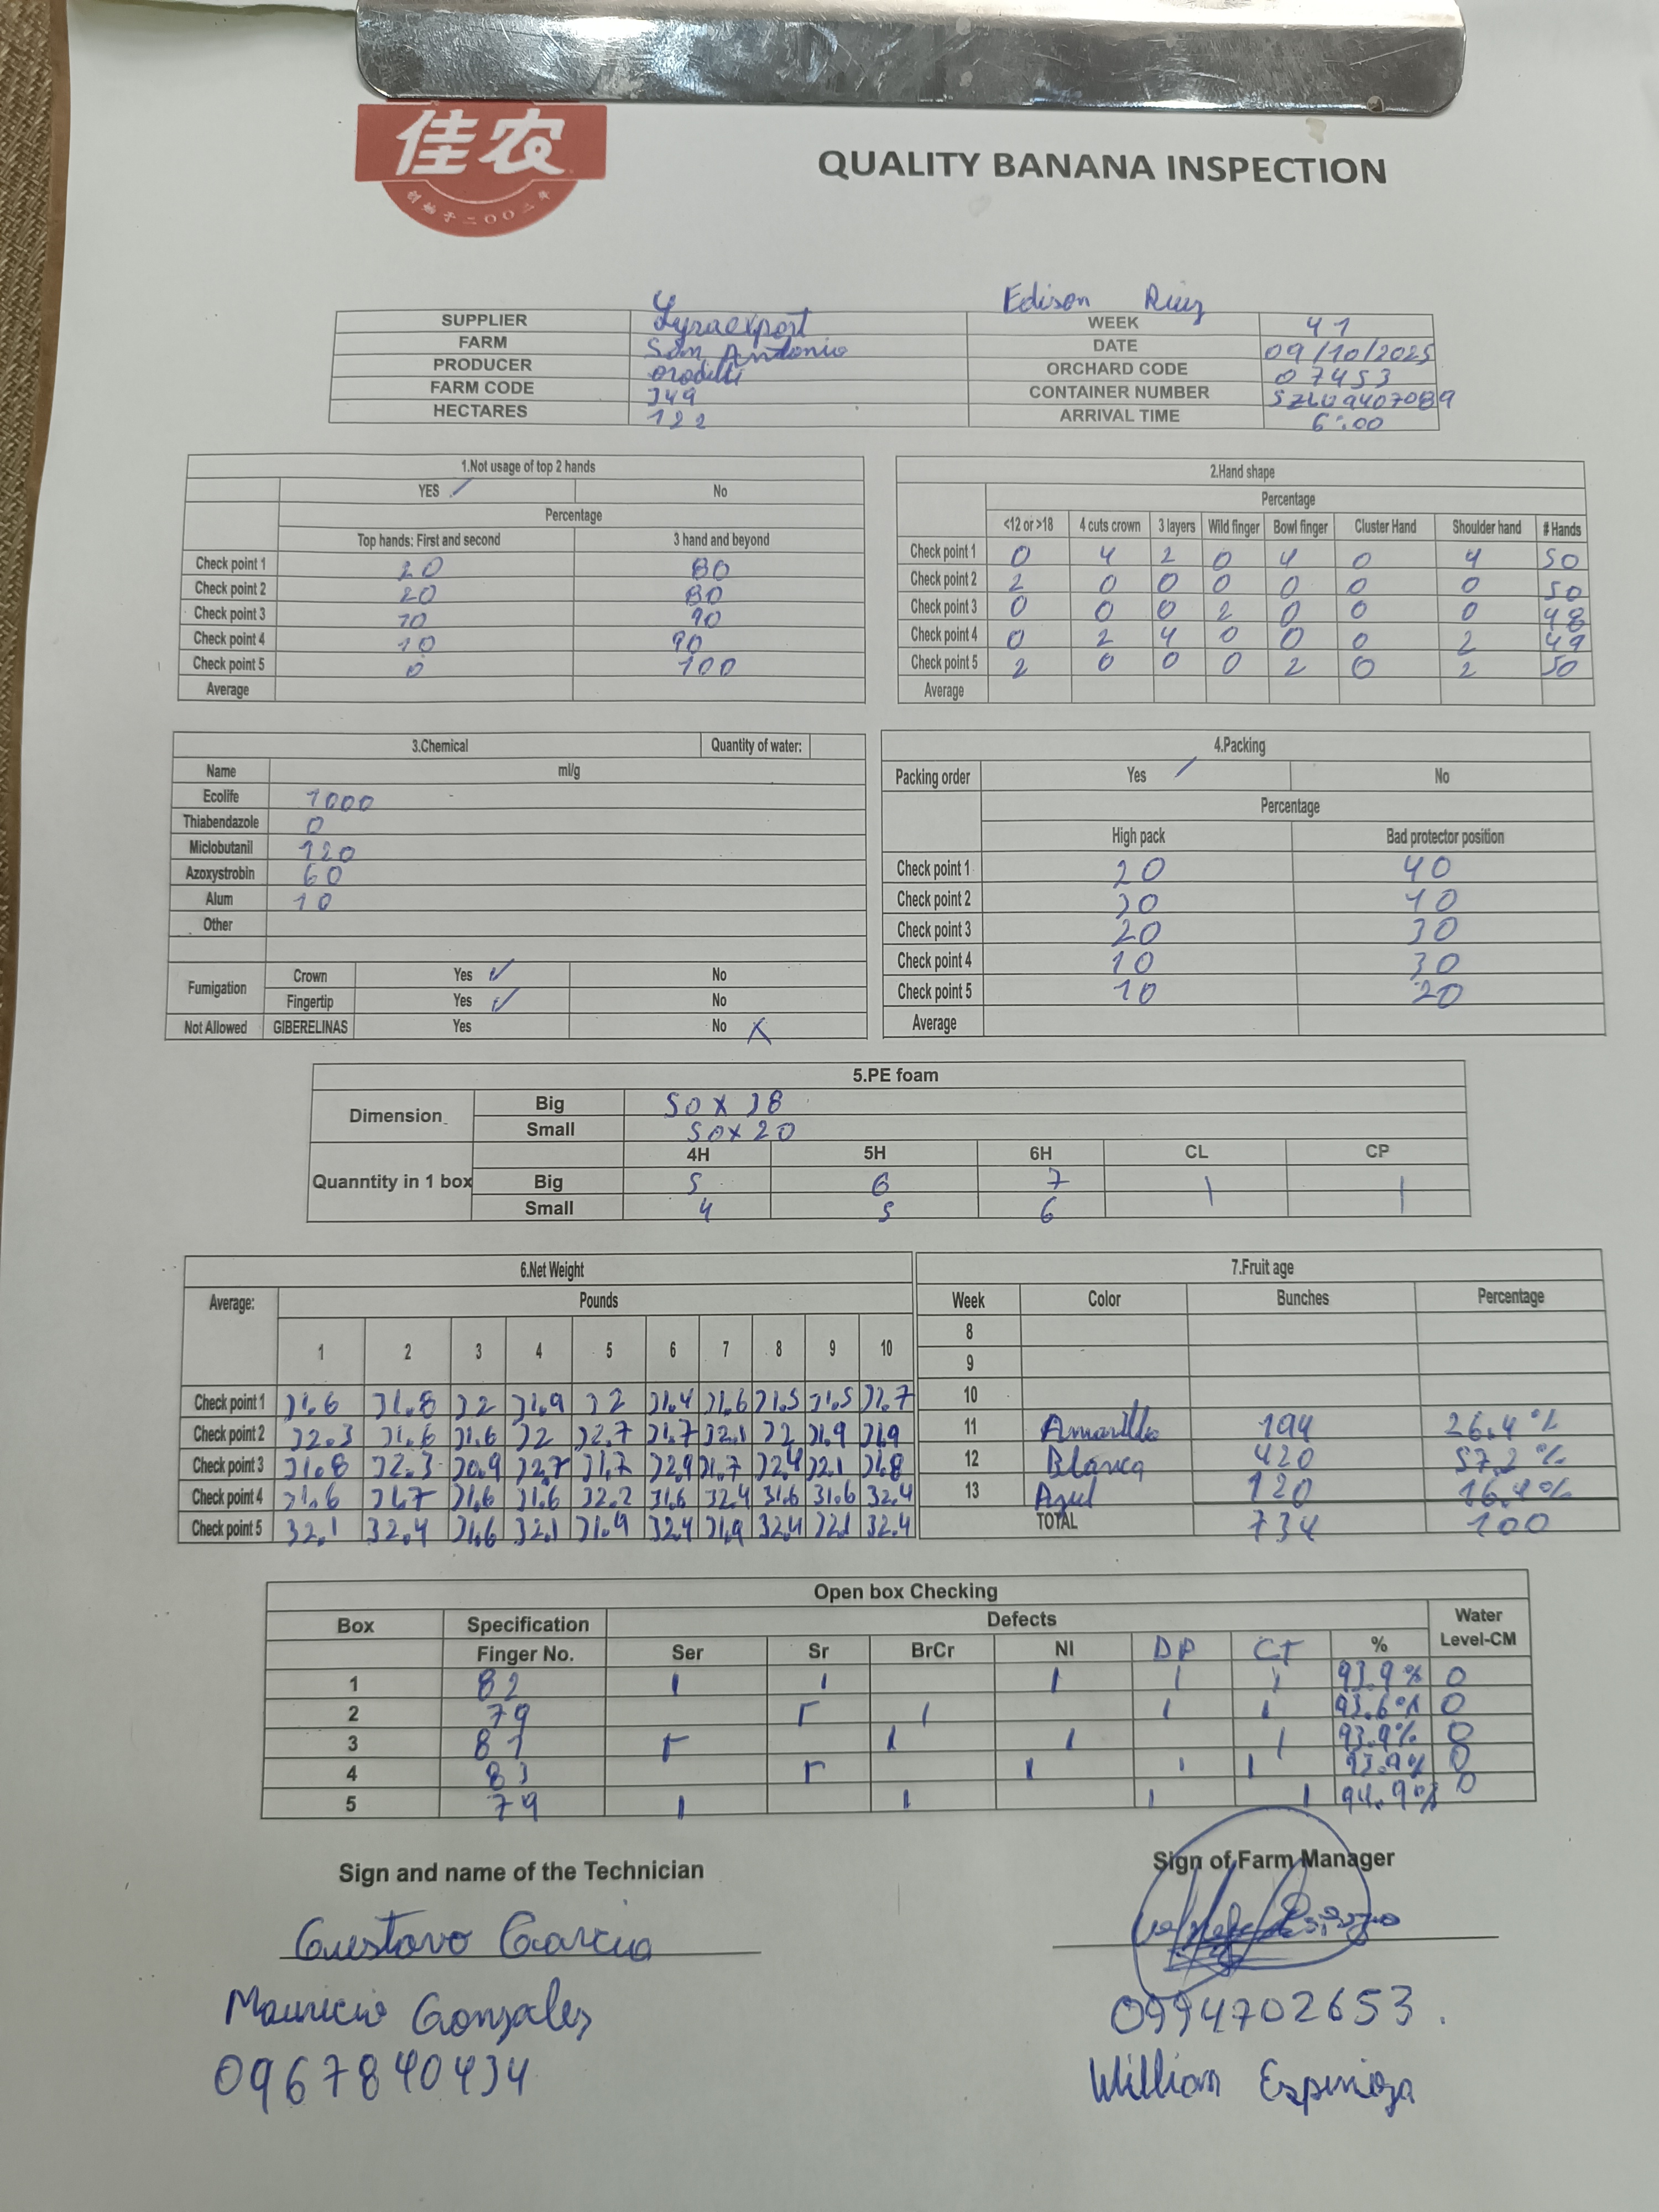 佳农
创始于二〇〇二年
QUALITY BANANA INSPECTION
Edison Ruiz
SUPPLIER Lyraexport WEEK 41
FARM San Antonio DATE 09/10/2025
PRODUCER ORCHARD CODE 07453
FARM CODE 349 CONTAINER NUMBER
HECTARES 122 ARRIVAL TIME 6:00
1.Not usage of top 2 hands
YES ✓ No
Percentage
Top hands: First and second 3 hand and beyond
Check point 1 20 80
Check point 2 20 80
Check point 3 10 90
Check point 4 10 90
Check point 5 0 100
Average
2.Hand shape
Percentage
<12 or >18 4 cuts crown 3 layers Wild finger Bowl finger Cluster Hand Shoulder hand # Hands
Check point 1 0 4 2 0 4 0 4 50
Check point 2 2 0 0 0 0 0 0 50
Check point 3 0 0 0 2 0 0 0 48
Check point 4 0 2 4 0 0 0 2 49
Check point 5 2 0 0 0 2 0 2 50
Average
3.Chemical Quantity of water:
Name ml/g
Ecolife 1000
Thiabendazole 0
Miclobutanil 120
Azoxystrobin 60
Alum 10
Other
Fumigation Crown Yes ✓ No
Fingertip Yes ✓ No
Not Allowed GIBERELINAS Yes No X
4.Packing
Packing order Yes ✓ No
Percentage
High pack Bad protector position
Check point 1 20 40
Check point 2 30 40
Check point 3 20 30
Check point 4 10 30
Check point 5 10 20
Average
5.PE foam
Dimension Big 50 x 38
Small 50 x 20
4H 5H 6H CL CP
Quanntity in 1 box Big 5 6 7
Small 4 5 6
6.Net Weight
Average: Pounds
1 2 3 4 5 6 7 8 9 10
Check point 1 31.6 31.8 32 31.9 32 31.4 31.6 31.5 31.5 31.7
Check point 2 32.3 31.6 31.6 32 32.7 31.7 32.1 32 31.9 31.9
Check point 3 31.8 32.3 30.9 32.7 31.7 32.9 31.7 32.4 32.1 31.8
Check point 4 31.6 31.7 31.6 31.6 32.2 31.6 32.4 31.6 31.6 32.4
Check point 5 32.1 32.4 31.6 32.1 31.9 32.4 31.9 32.4 32.1 32.4
7.Fruit age
Week Color Bunches Percentage
8
9
10
11 Amarillo 194 26.4%
12 Blanca 420 57.2%
13 Azul 120 16.4%
TOTAL 734 100
Open box Checking
Box Specification Defects Water
Finger No. Ser Sr BrCr NI DP CT % Level-CM
1 82 1 1 1 1 1 93.9% 0
2 79 r 1 1 1 93.6% 0
3 81 r 1 1 1 93.9% 0
4 83 r 1 1 1 93.9% 0
5 79 1 1 1 1 94.9% 0
Sign and name of the Technician Sign of Farm Manager
Gustavo Garcia
Mauricio Gonzales 0994702653.
0967840434 Willian Espinoza